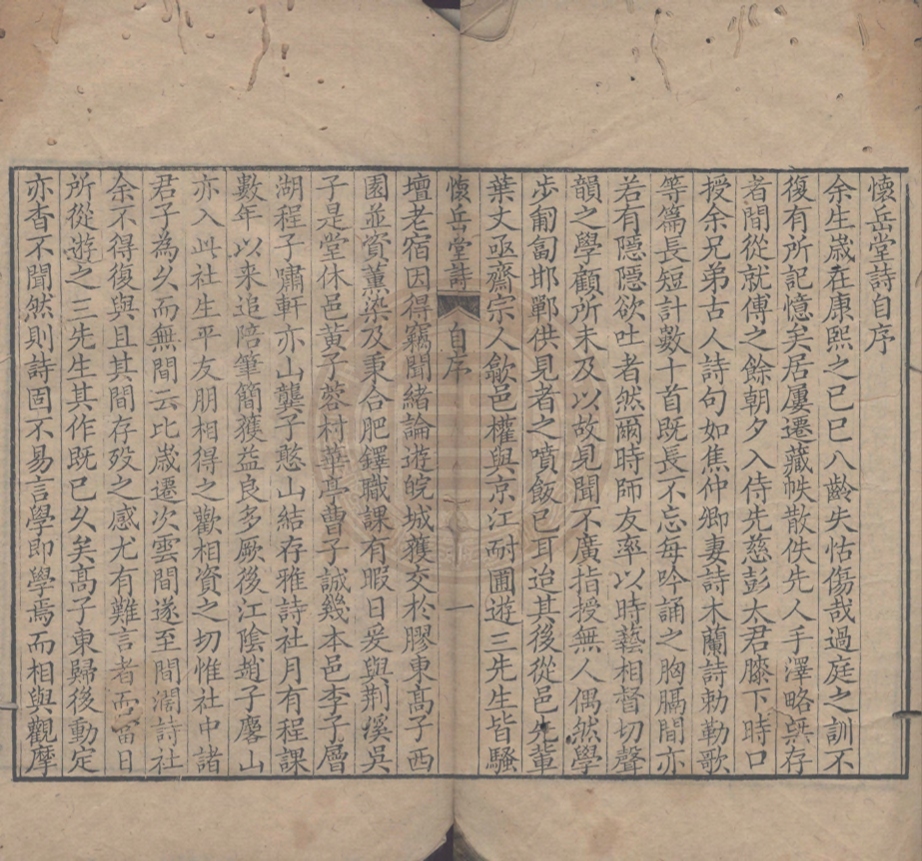 懷岳堂詩自序
余生歲在康熙之己巳八齡失怙傷哉過庭之訓不
復有所記憶矣居屢遷藏帙散佚先人手澤略無存
者間從就傅之餘朝夕入侍先慈彭太君膝下時口
授余兄弟古人詩句如焦仲卿妻詩木蘭詩勅勒歌
等篇長短計數十首既長不忘每吟誦之胸膈間亦
若有隱隱欲吐者然爾時師友率以時藝相督切聲
韻之學顧所未及以故見聞不廣指授無人偶然學
步匍匐邯鄲供見者之噴飯已耳迨其後從邑先輩
葉丈亟齋宗人歙邑權與京江耐圃遊三先生皆騷
懷岳堂詩 自序 一
壇老宿因得竊聞緒論遊皖城獲交於膠東高子西
園並資薰染及秉合肥鐸職課有暇日爰與荆溪吳
子是堂休邑黃子蓉村華亭曹子誠幾本邑李子層
湖程子嘯軒亦山龔子憨山結存雅詩社月有程課
數年以来追陪筆簡獲益良多厥後江陰趙子麐山
亦入此社生平友朋相得之歡相資之切惟社中諸
君子為久而無間云比歲遷次雲間遂至間濶詩社
余不得復與且其間存歿之感尤有難言者而當日
所從遊之三先生其作既已久矣高子東歸後動定
亦杳不聞然則詩固不易言學即學焉而相與觀摩